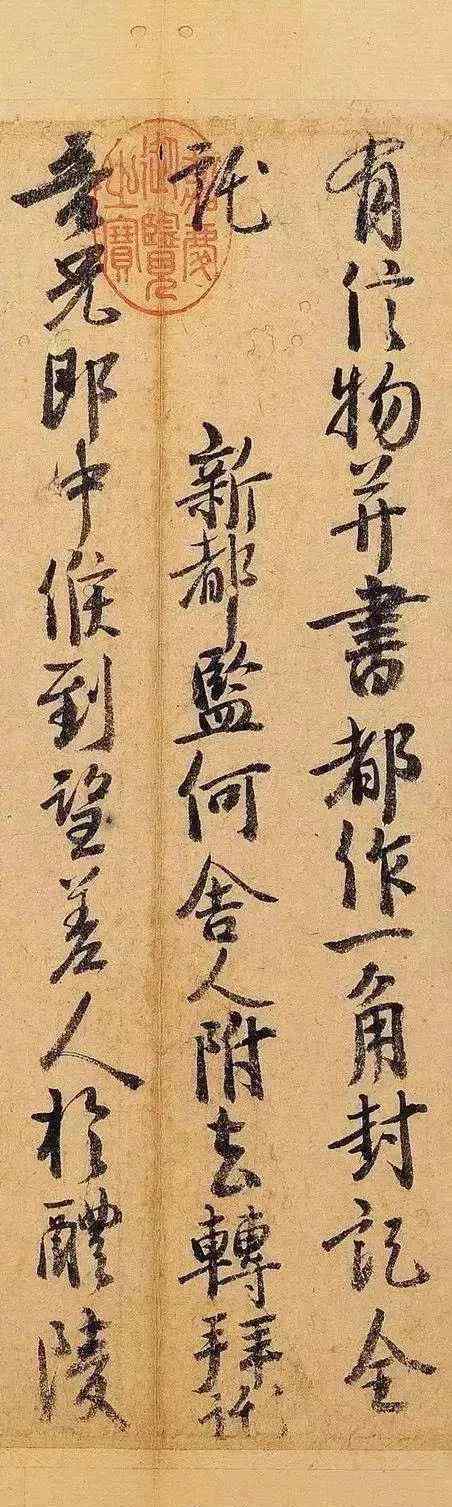 有信物并書都作一角封記全
託
新都監何舍人附去轉拜託
吾兄郎中候到望差人於醴陵
嘉慶御覽之寶